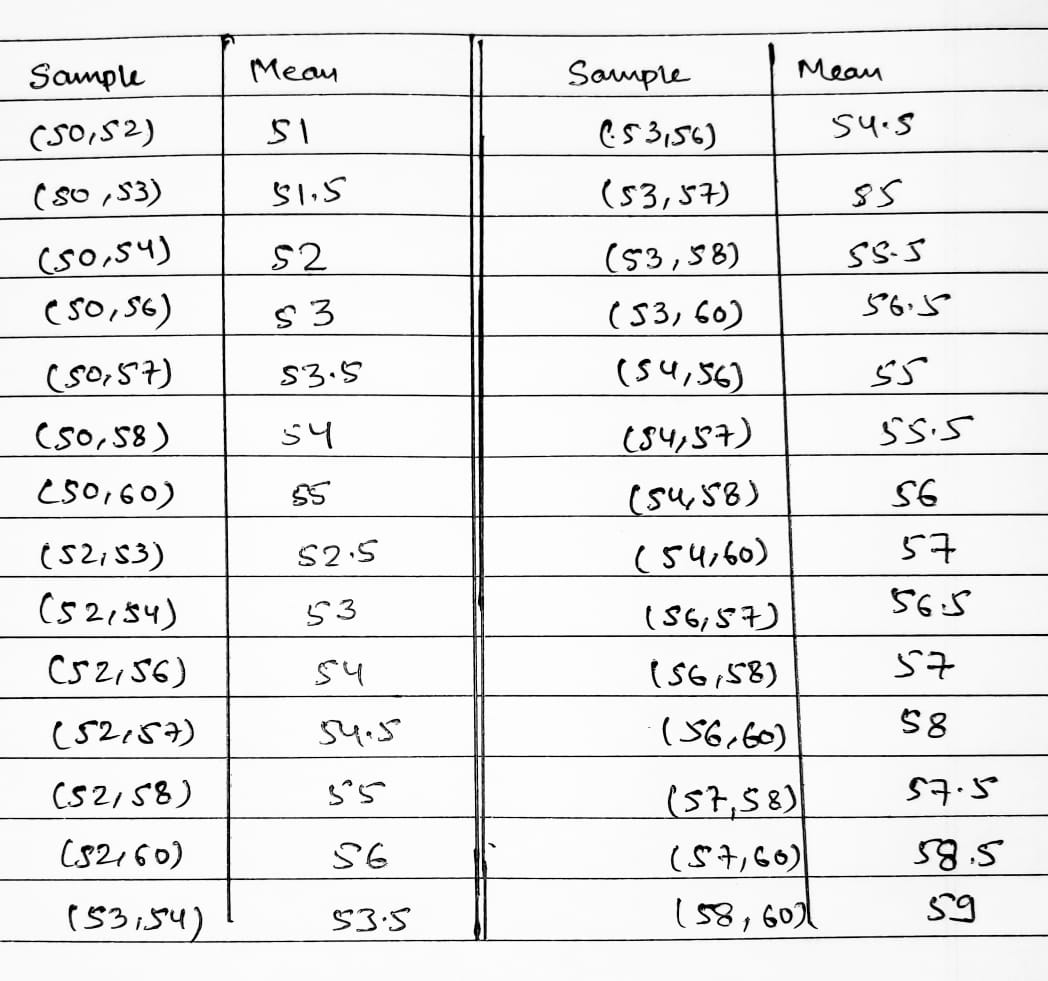 Sample Mean Sample Mean
(50,52) 51 (53,56) 54.5
(50,53) 51.5 (53,57) 55
(50,54) 52 (53,58) 55.5
(50,56) 53 (53,60) 56.5
(50,57) 53.5 (54,56) 55
(50,58) 54 (54,57) 55.5
(50,60) 55 (54,58) 56
(52,53) 52.5 (54,60) 57
(52,54) 53 (56,57) 56.5
(52,56) 54 (56,58) 57
(52,57) 54.5 (56,60) 58
(52,58) 55 (57,58) 57.5
(52,60) 56 (57,60) 58.5
(53,54) 53.5 (58,60) 59